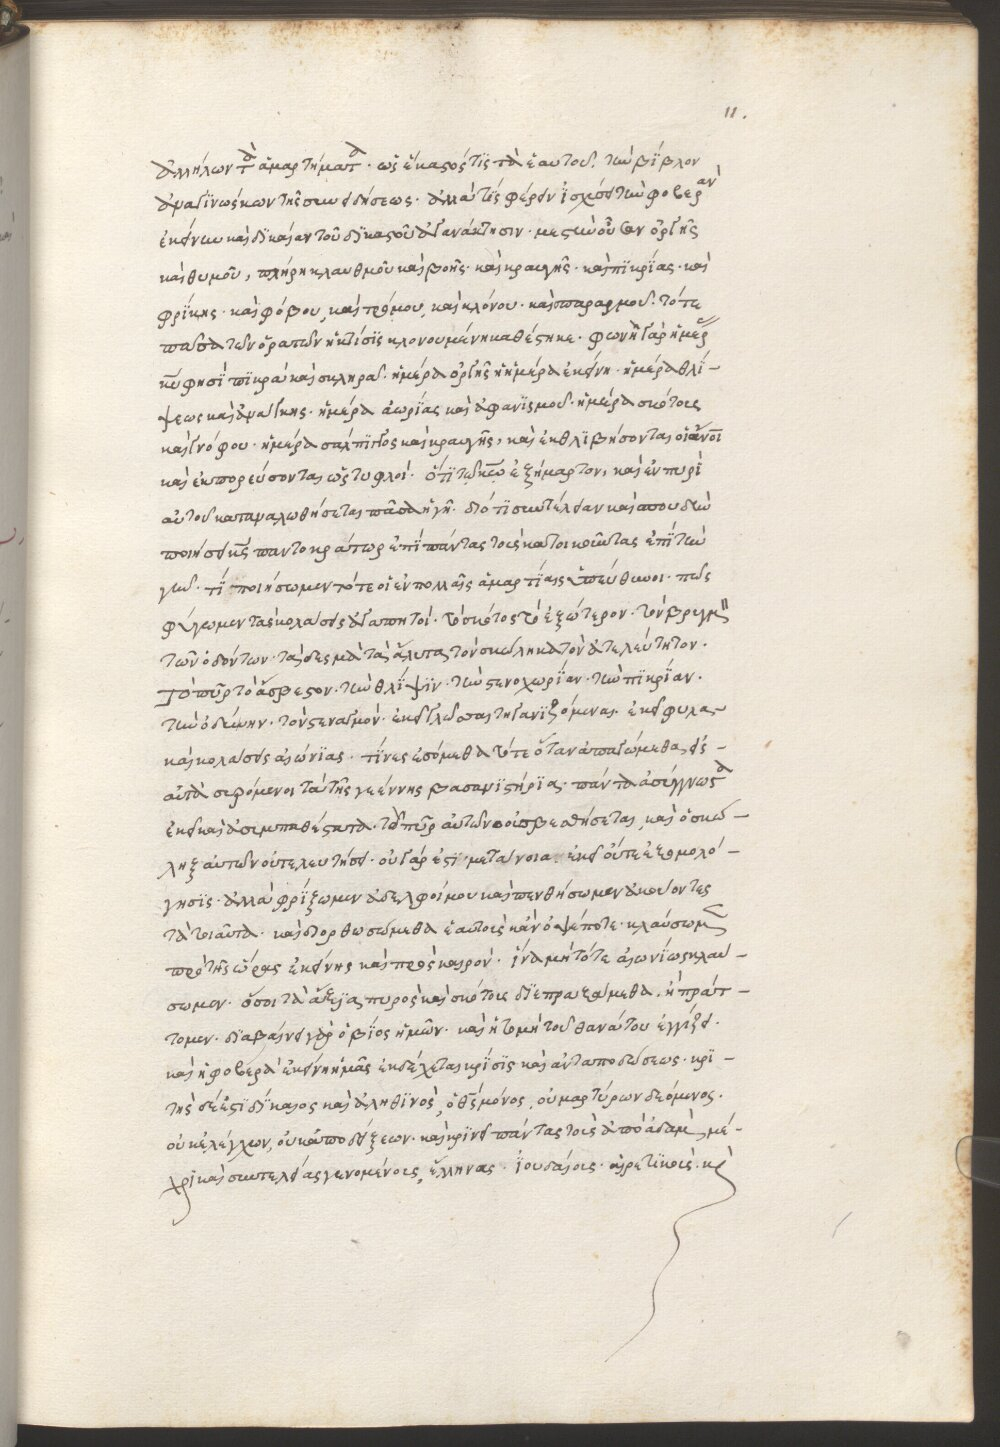 11.
ἀλλήλων τὰ ἁμαρτήματα. ὡς ἕκαστός τῒς τὰ ἑαυτοῦ. τὴν βίβλον
ἀναγῒνώσκων τῆς συνειδήσεως. ἀλλὰ τίς φέρειν ἰσχύσει τὴν φοβερὰν
ἐκείνην καὶ δικαίαν τοῦ δικαστοῦ ἀγανάκτησιν. μεστὴν οὖσαν ὀργῆς
καὶ θυμοῦ, πλήρη κλαυθμοῦ καὶ βοῆς. καὶ κραυγῆς. καὶ πϊκρίας. καὶ
φρίκης. καὶ φόβου, καὶ τρόμου, καὶ κλόνου. καὶ σπαραγμοῦ. τότε
πᾶσα τῶν ὁρατῶν ἡ κτίσϊς κλονουμένη καθέστηκε. φωνὴ γὰρ ἡμέρ
κυ φησὶ πϊκρὰ καὶ σκληρά. ἡμέρα ὀργῆς ἡ ἡμέρα ἐκείνη. ἡμέρα θλί–
ψεως καὶ ἀνάγκης. ἡμέρα ἀωρίας καὶ ἀφανϊσμοῦ. ἡμέρα σκότους
καὶ γνόφου. ἡμέρα σάλπϊγγος καὶ κραυγῆς, καὶ ἐκθλϊβήσονται οἱ ἄνοι
καὶ ἐκπορεύσονται ὡς τυφλοί. ὅτϊ τῷ κῷ ἐξήμαρτον, καὶ ἐν πυρὶ
αὐτοῦ καταναλωθήσεται πᾶσα ἡ γῆ. διότι συντέλειαν καὶ σπουδὴν
ποιήσει κς παντοκράτωρ ἐπὶ πάντας τοὺς κατοικοῦντας ἐπὶ τὴν
γῆν. τί ποιήσωμεν τότε οἱ ἐν πολλαῖς ἁμαρτίαις ὑπεύθυνοι. πῶς
φύγωμεν τὰς κολάσεις ἀγαπητοί. τὸ σκότος τὸ ἐξώτερον. τὸν βρυγμὸν
τῶν ὀδόντων. τὰ δεσμὰ τὰ ἄλυτα τὸν σκώληκα τὸν ἀτελεύτητον.
τὸ πῦρ τὸ ἄσβεστον. τὴν θλῖψϊν. τὴν στενοχωρίαν. τὴν πϊκρίαν.
τὴν ὀδύνην. τὸν στεναγμόν. ἐκεῖ γλῶσσαι τηγανϊζόμεναι. ἐκεῖ φυλακαὶ
καὶ κολάσεις αἰώνϊαι. τίνες ἐσόμεθα τότε ὅταν ἀπαγώμεθα, εἰς–
αὐτὰ σερόμενοι τὰ τῆς γεέννης βασανϊστήρϊα. πάντα ἀσύγγνωστα
ἐκεῖ καὶ ἀσυμπαθέστατα. τὸ πῦρ αὐτῶν οὐ σβεσθήσεται, καὶ ὁ σκώ–
ληξ αὐτῶν οὐ τελευτήσει. οὐ γάρ ἐστϊ μετάνοια ἐκεῖ οὔτε ἐξομολό–
γησϊς. ἀλλὰ φρίξωμεν ἀδελφοί μου καὶ πενθήσωμεν ἀκούοντες
τὰ τοιαῦτα. καὶ διορθωσώμεθα ἑαυτοὺς κἂν ὀψέποτε. κλαύσωμεν
πρὸ τῆς ὥρας ἐκείνης καὶ πρὸς καιρόν. ἵνα μὴ τότε αἰωνίως κλαύ–
σωμεν. ὅσοι τὰ ἄξϊα πυρὸς καὶ σκότους δϊεπραξάμεθα, ἢ πράτ–
τομεν. δϊαβαίνει γὰρ ὁ βίος ἡμῶν. καὶ ἡ τομὴ τοῦ θανάτου ἐγγίζει.
καὶ ἡ φοβερὰ ἐκείνη ἡμᾶς ἐκδέχεται κρίσϊς καὶ ἀνταποδώσεως. κρϊ–
τὴς δέ ἐστϊ δίκαιος καὶ ἀληθϊνὸς, ὁ θς μόνος, οὐ μαρτύρων δεόμενος.
οὐκ ἐλέγχων, οὐκ ἀποδείξεων. καὶ κρίνει πάντας τοὺς ἀπὸ ἀδὰμ μέ–
χρϊ καὶ συντελείας γενομένους, ἕλληνας. ἰουδαίους. αἱρετϊκοὺς. καὶ